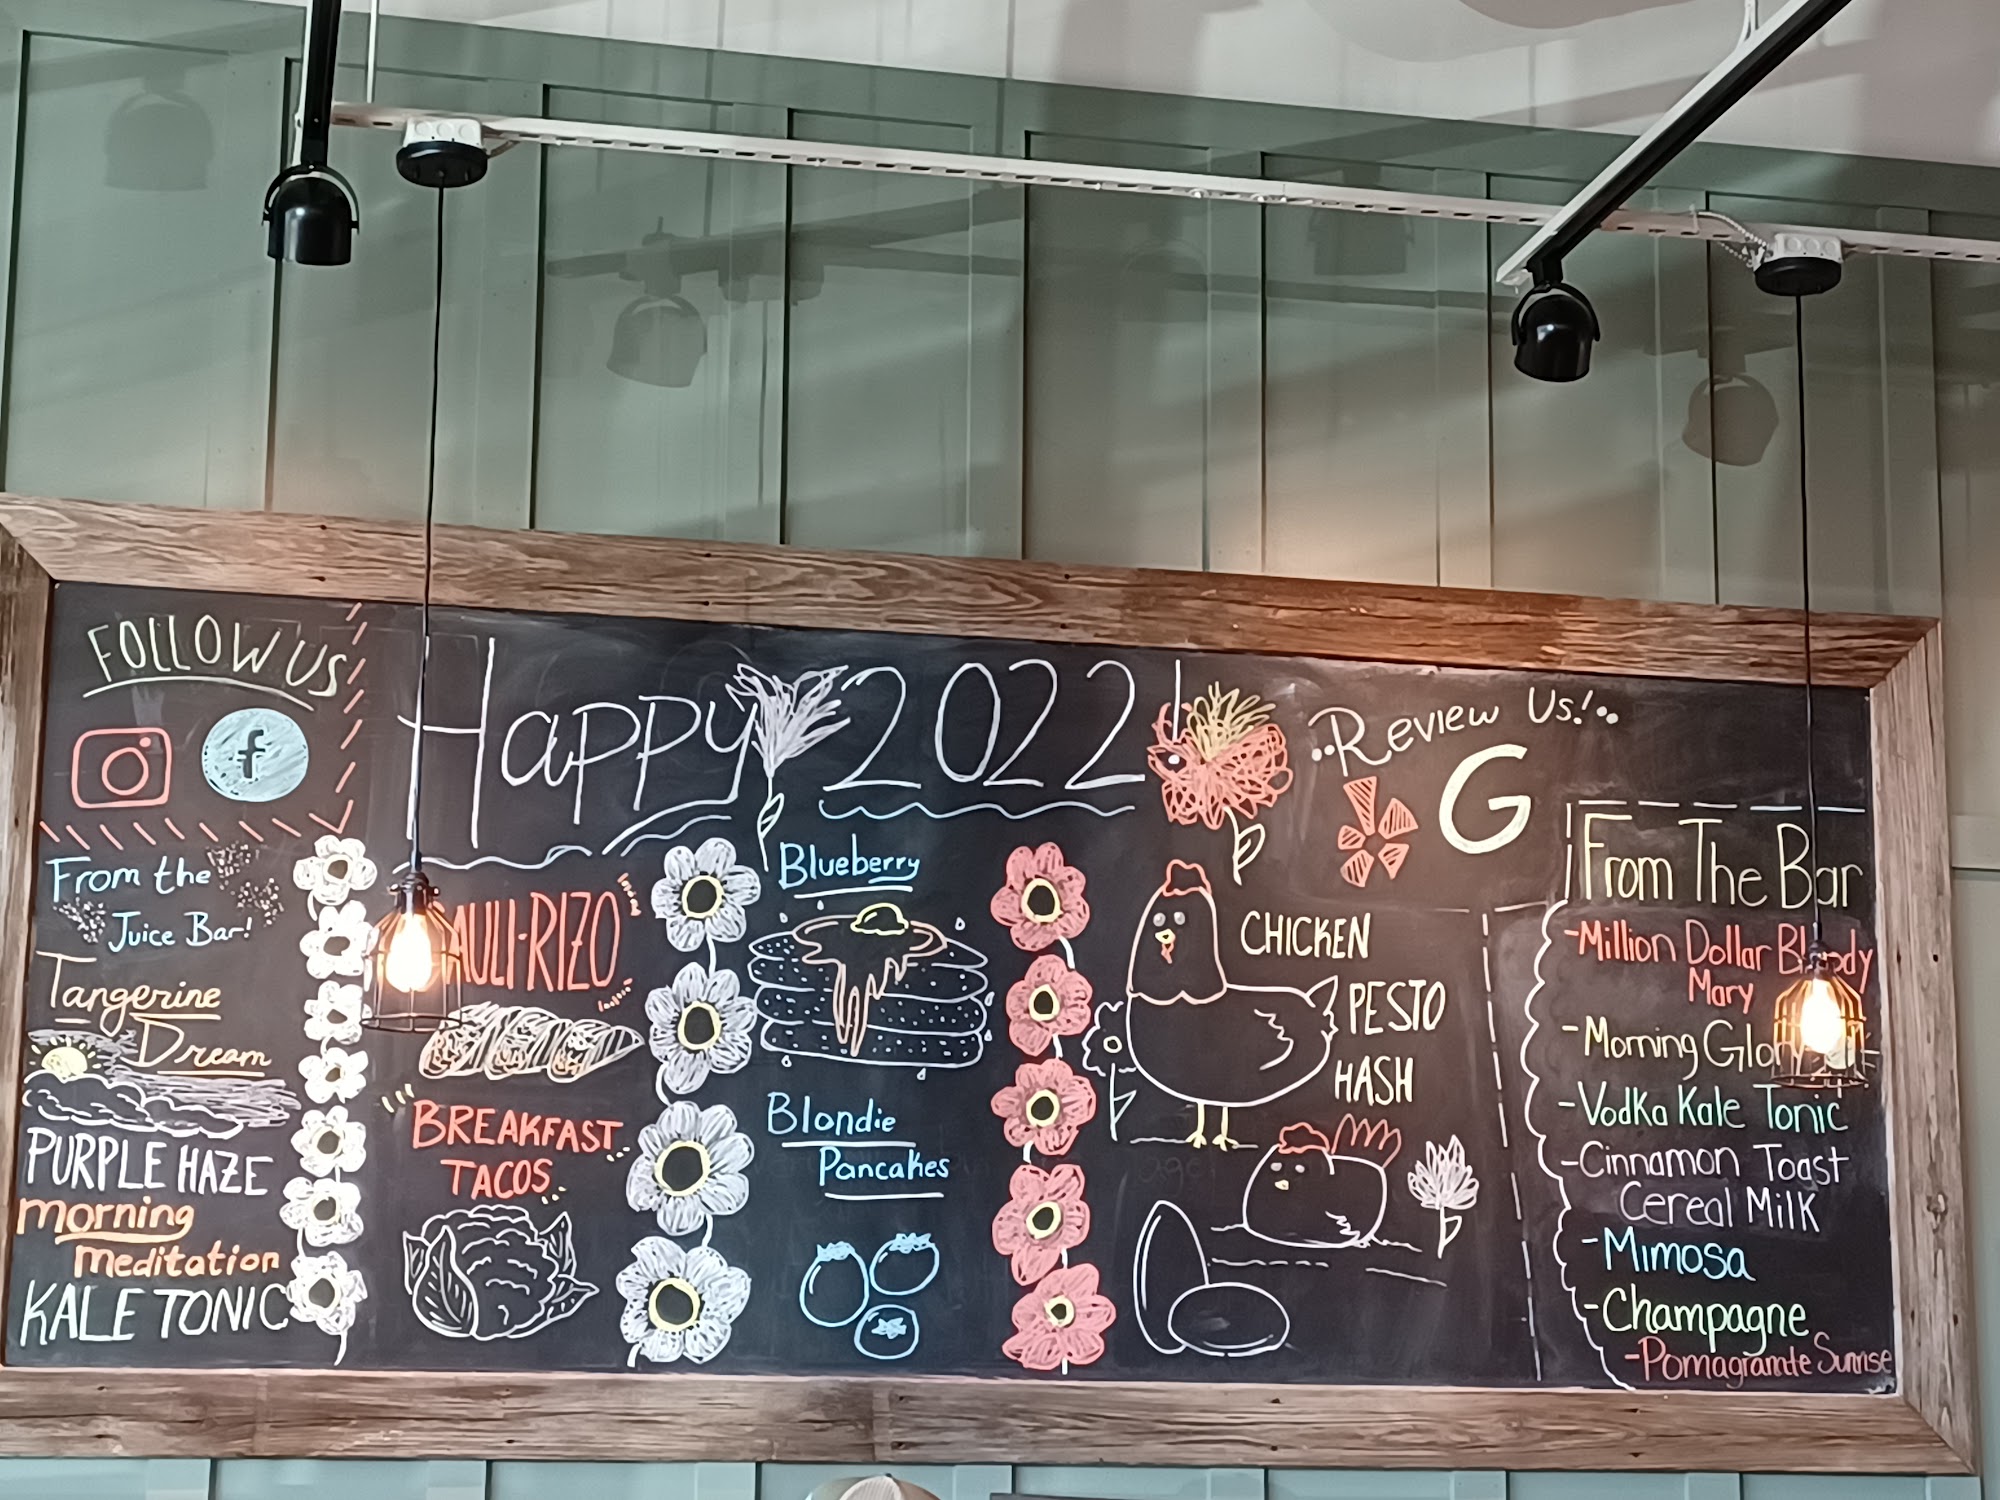 FOLLOW US
f
Happy 2022!
Review Us!
G
From the
Juice Bar!
Tangerine
Dream
PURPLE HAZE
morning
meditation
KALE TONIC
BREAKFAST
TACOS
Blueberry
Blondie
Pancakes
CHICKEN
PESTO
HASH
From The Bar
-Million Dollar Bloody
Mary
-Morning
-Vodka Kale Tonic
-Cinnamon Toast
Cereal Milk
-Mimosa
-Champagne
-Pomagranate Sunrise